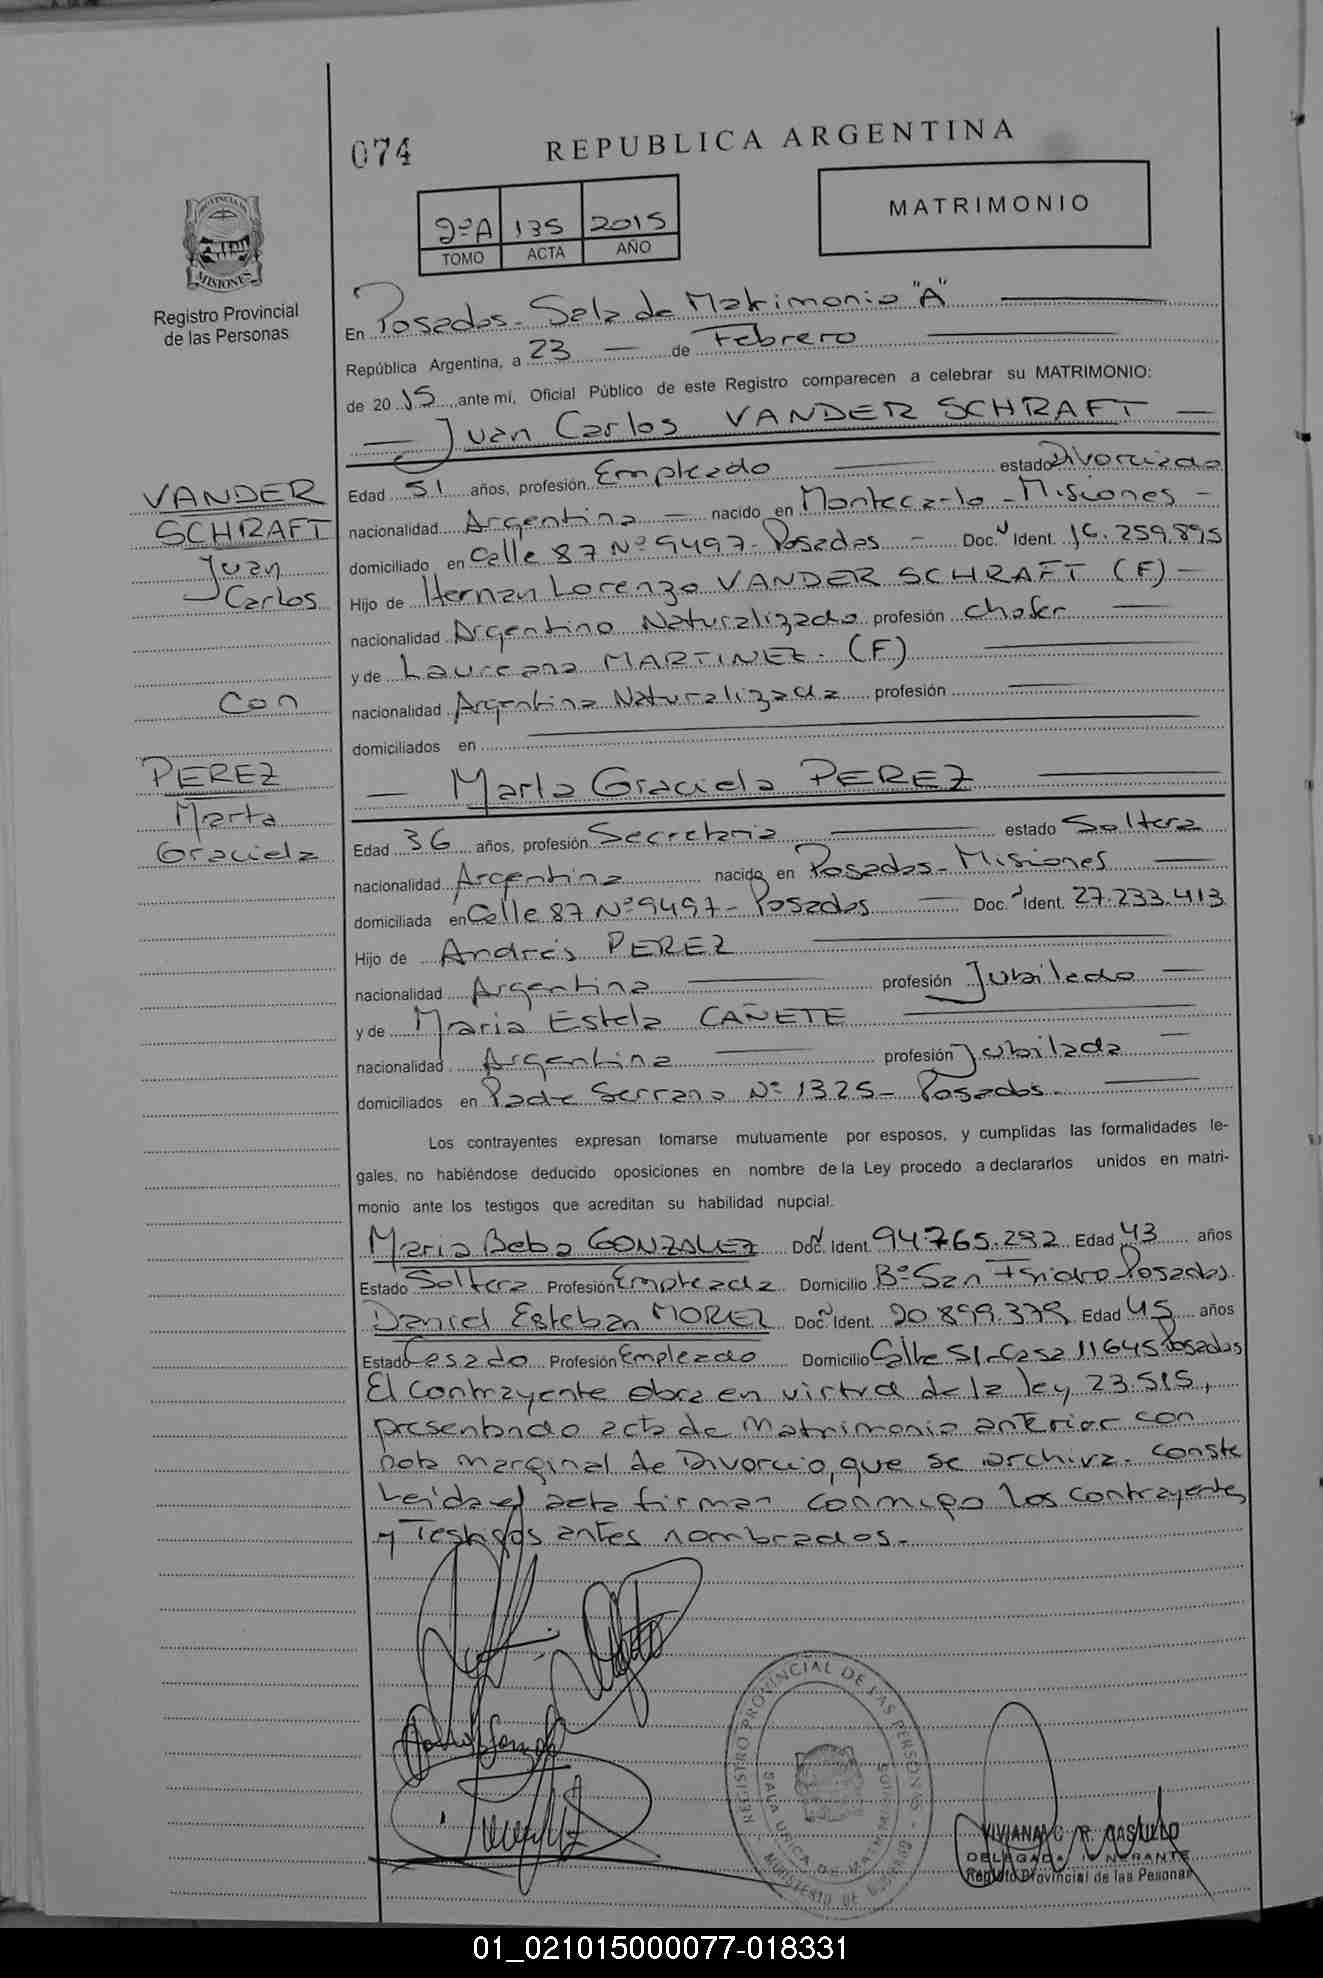 074
REPUBLICA ARGENTINA
2ºA 135 2015
TOMO ACTA AÑO
MATRIMONIO
PROVINCIA DE MISIONES
Registro Provincial
de las Personas
En Posadas - Sala de Matrimonio "A"
República Argentina, a 23 de Febrero
de 2015 ante mí, Oficial Público de este Registro comparecen a celebrar su MATRIMONIO:
Juan Carlos VANDER SCHRAFT
VANDER
SCHRAFT
Juan
Carlos
Con
PEREZ
Marta
Graciela
Edad 51 años, profesión Empleado estado Divorciado
nacionalidad Argentina nacido en Montecarlo - Misiones
domiciliado en Calle 87 Nº 9497 - Posadas Doc. Ident. 16.259.895
Hijo de Hernan Lorenzo VANDER SCHRAFT (F)
nacionalidad Argentino Naturalizado profesión chofer
y de Laureana MARTINEZ. (F)
nacionalidad Argentina Naturalizada profesión
domiciliados en
Marta Graciela PEREZ
Edad 36 años, profesión Secretaria estado Soltera
nacionalidad Argentina nacido en Posadas - Misiones
domiciliada en Calle 87 Nº 9497 - Posadas Doc. Ident. 27.233.413
Hijo de Andrés PEREZ
nacionalidad Argentina profesión Jubilado
y de Maria Estela CAÑETE
nacionalidad Argentina profesión Jubilada
domiciliados en Padre Serrano Nº 1325 - Posadas.
Los contrayentes expresan tomarse mutuamente por esposos, y cumplidas las formalidades le-
gales, no habiéndose deducido oposiciones en nombre de la Ley procedo a declararlos unidos en matri-
monio ante los testigos que acreditan su habilidad nupcial.
Maria Beba GONZALEZ Doc. Ident. 94.765.292 Edad 43 años
Estado Soltera Profesión Empleada Domicilio Bº San Isidro - Posadas.
Daniel Esteban MOREL Doc. Ident. 20.899.379 Edad 45 años
Estado Casado Profesión Empleado Domicilio Calle 51 - Casa 11645 Posadas
El contrayente obra en virtud de la ley 23.515,
presentando acta de Matrimonio anterior con
nota marginal de Divorcio, que se archiva. conste
Leida el acta firman conmigo los contrayentes
y Testigos antes nombrados.
REGISTRO PROVINCIAL DE LAS PERSONAS
SALA UNICA DE MATRIMONIOS
MINISTERIO DE GOBIERNO
Registro Provincial de las Personas
01_021015000077-018331